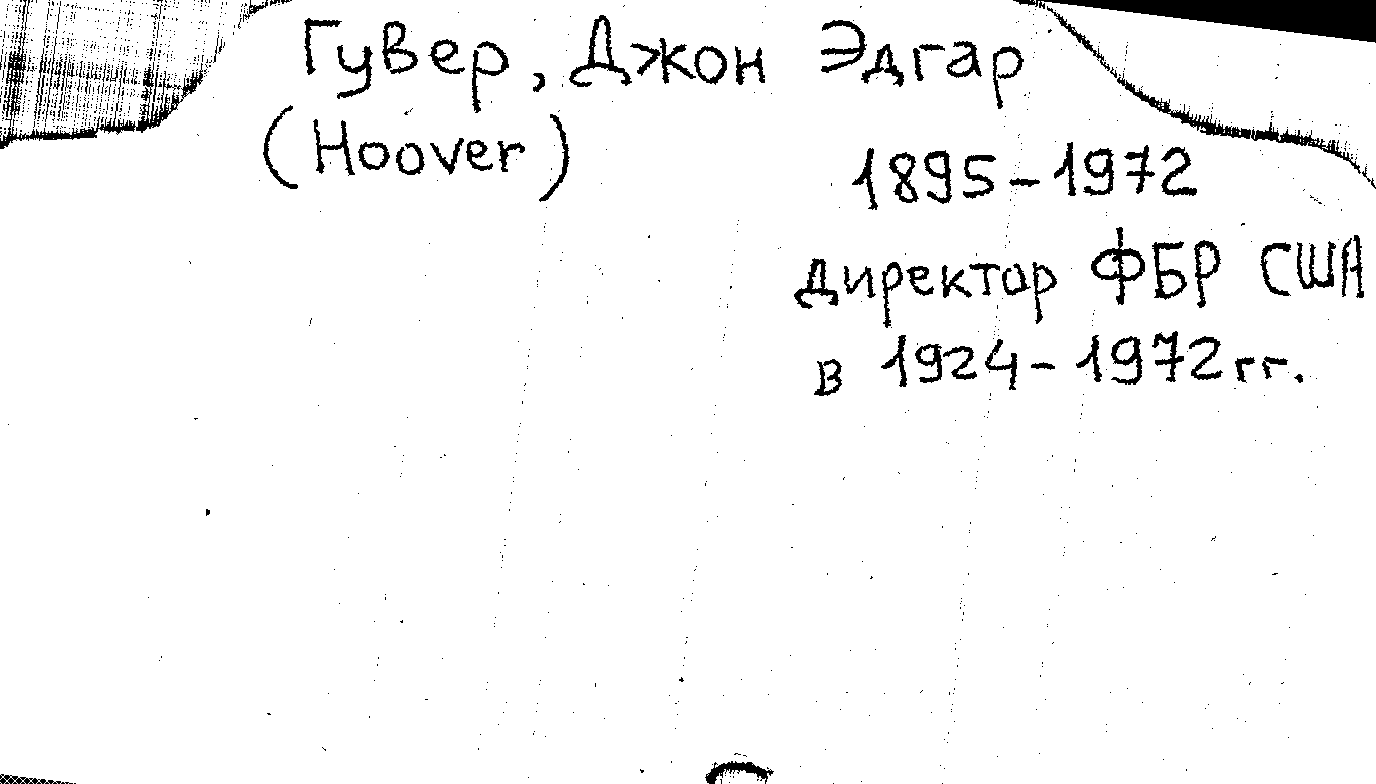 Гувер, Джон Эдгар
(Hoover)
1895-1972
директор ФБР США
в 1924-1972 гг.